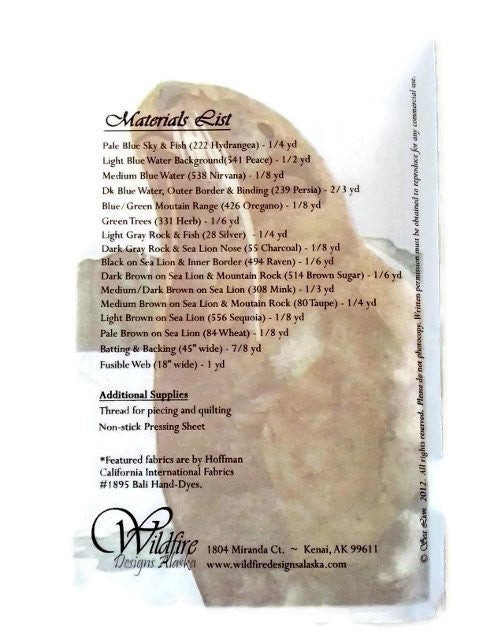 Materials List
Pale Blue Sky & Fish (222 Hydrangea) - 1/4 yd
Light Blue Water Background(541 Peace) - 1/2 yd
Medium Blue Water (538 Nirvana) - 1/8 yd
Dk Blue Water, Outer Border & Binding (239 Persia) - 2/3 yd
Blue/Green Moutain Range (426 Oregano) - 1/8 yd
Green Trees (331 Herb) - 1/6 yd
Light Gray Rock & Fish (28 Silver) - 1/4 yd
Dark Gray Rock & Sea Lion Nose (55 Charcoal) - 1/8 yd
Black on Sea Lion & Inner Border (494 Raven) - 1/6 yd
Dark Brown on Sea Lion & Mountain Rock (514 Brown Sugar) - 1/6 yd
Medium/Dark Brown on Sea Lion (308 Mink) - 1/3 yd
Medium Brown on Sea Lion & Moutain Rock (80 Taupe) - 1/4 yd
Light Brown on Sea Lion (556 Sequoia) - 1/8 yd
Pale Brown on Sea Lion (84 Wheat) - 1/8 yd
Batting & Backing (45" wide) - 7/8 yd
Fusible Web (18" wide) - 1 yd
Additional Supplies
Thread for piecing and quilting
Non-stick Pressing Sheet
*Featured fabrics are by Hoffman
California International Fabrics
#1895 Bali Hand-Dyes.
Wildfire
Designs Alaska
1804 Miranda Ct. ~ Kenai, AK 99611
www.wildfiredesignsalaska.com
© Sea Lion 2012. All rights reserved. Please do not photocopy. Written permission must be obtained to reproduce for any commercial use.